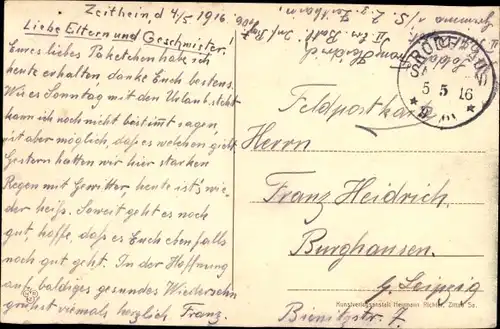 Zeithein, d 4/5 1916.
Liebe Eltern und Geschwister!
Eures liebes Paketchen hab ich
heute erhalten danke Euch bestens.
Wie es Sonntag mit den Urlaub steht
kann ich noch nicht bestimmt sagen,
ist aber möglich, daß es welchen giebt
Gestern hatten wir hier starken
Regen mit Gewitter heute ist's wie-
der heiß. Soweit geht es noch
gut, hoffe, daß es Euch ebenfalls
noch gut geht. In der Hoffnung
auf baldiges gesundes Wiedersehn
grüßt viemals herzlich Franz.
5 5 16
Feldpostkarte
Herrn
Franz Heidrich.
Burghausen.
b/ Leipzig
Bienitzstr. 7
Kunstverlagsanstalt Hermann Richter, Zittau Sa.